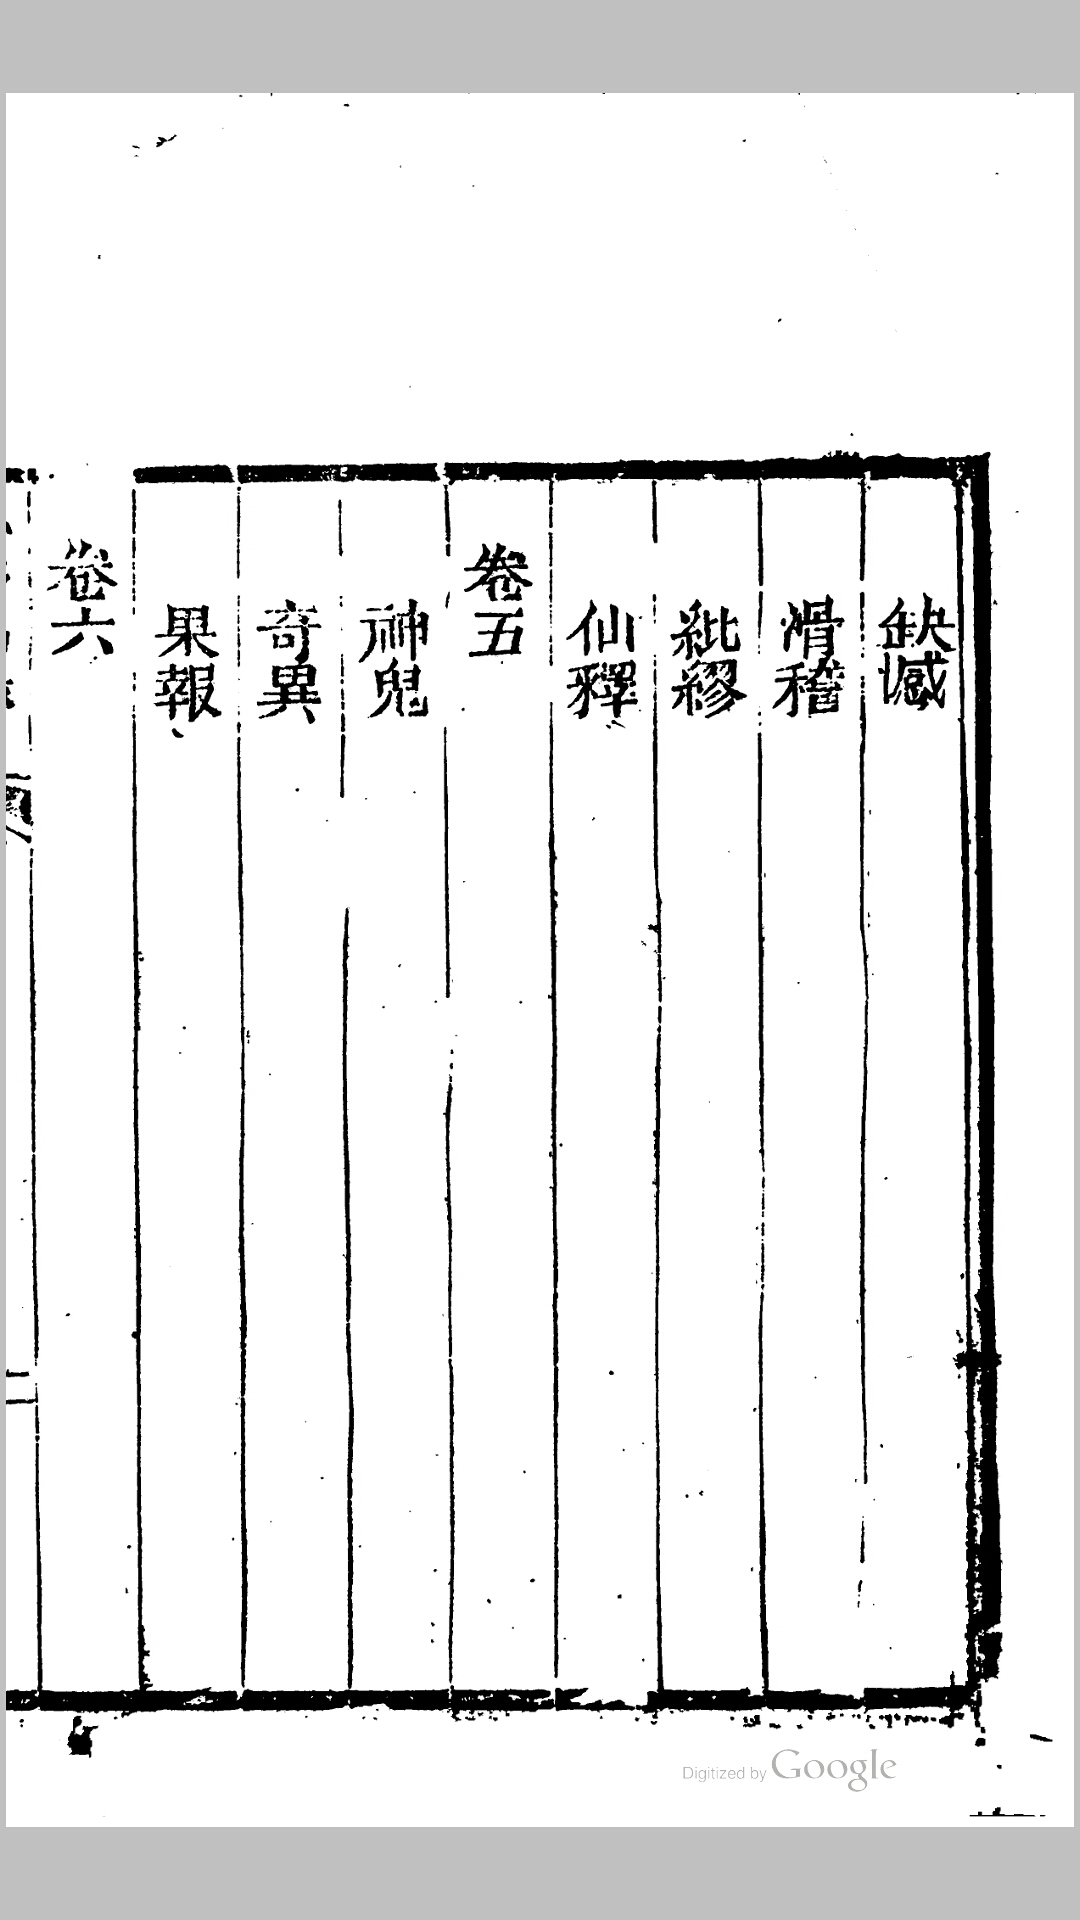 缺憾
滑稽
紕繆
仙釋
卷五
神鬼
奇異
果報
卷六
Digitized by Google